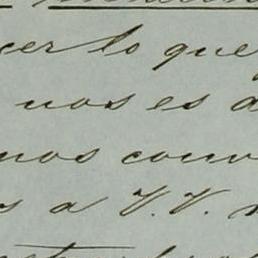 cer lo que
nos es a
nos conv
s a V.V.